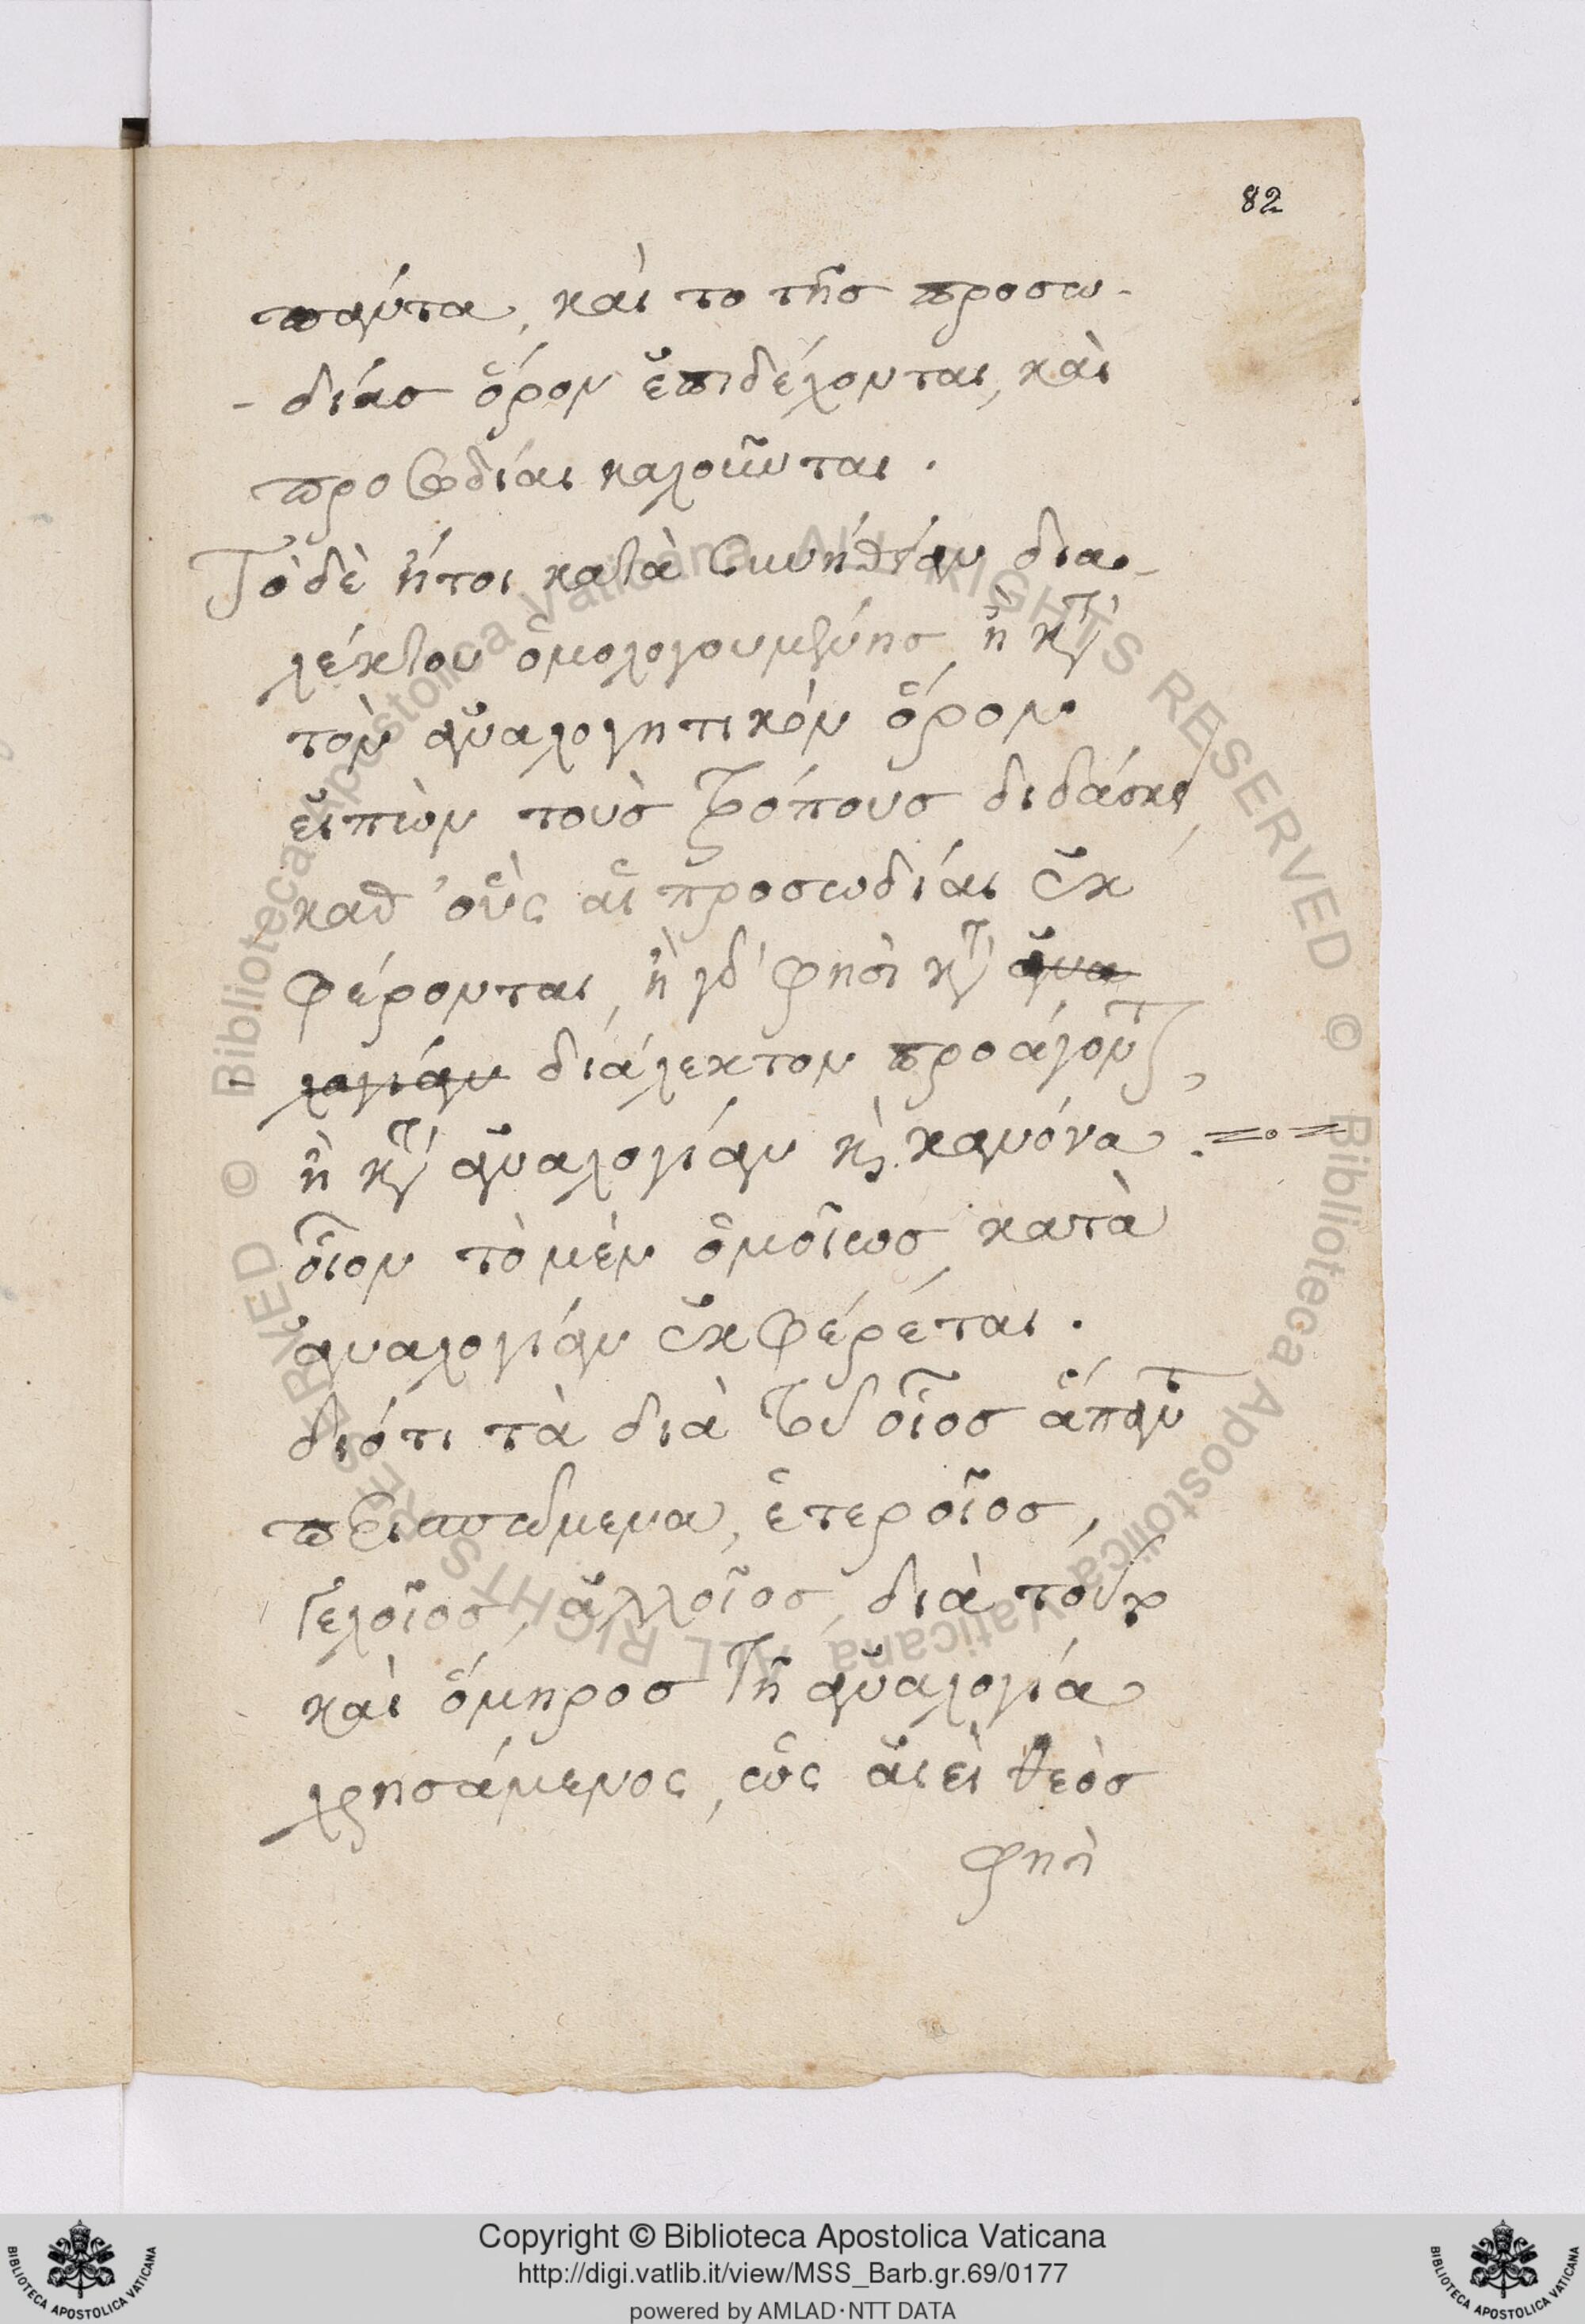 82
πάντα, καὶ το τῆσ προσω-
-δίασ ὅρον ἐπιδέχονται, καὶ
προσωδίαι καλοῦνται.
Τὸ δὲ ἤτοι κατὰ συνήθειαν δια-
λέκτου ὁμολογουμένης, ἢ κατὰ
τὸν ἀναλογητικόν ὅρον
εἰπὼν τοὺσ τρόπουσ διδάσκει,
καθ ̓ οὓς αἱ προσωδίαι ἐκ
φέρονται, ἢ γὰρ φησὶ κατὰ ἀνα
λογίαν διάλεκτον προάγονται,
ἢ κατὰ ἀναλογίαν κὶ κανόνα. =ο=
οἷον τὸ μὲν ὁμοῖωσ, κατὰ
ἀναλογίαν ἐκφέρέται.
διότι τὰ διὰ τοῦ οῖοσ ἅπαντα
περισπώμενα, ἑτεροῖοσ,
Γελοῖοσ, ἀλλοῖοσ, διὰ τοῦτο
καὶ ὅμηροσ τῆ ἀναλογία
χρησάμενος, ὡς αἰεὶ θεὸσ
φησὶ
Copyright © Biblioteca Apostolica Vaticana
http://digi.vatlib.it/view/MSS_Barb.gr.69/0177
powered by AMLAD·NTT DATA
BIBLIOTECA APOSTOLICA VATICANA
BIBLIOTECA APOSTOLICA VATICANA
© Biblioteca Apostolica Vaticana ALL RIGHTS RESERVED © Biblioteca Apostolica Vaticana ALL RIGHTS RESERVED